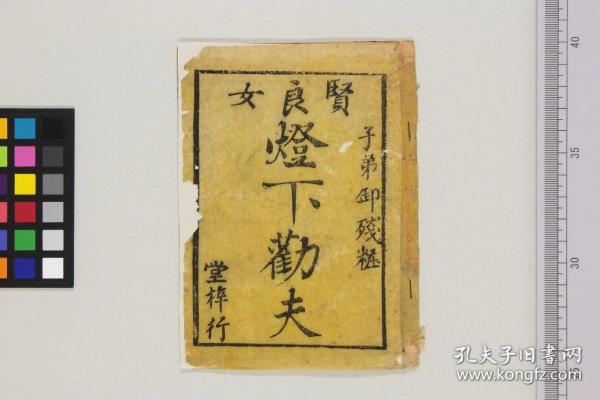 賢良女
子弟卸殘粧
燈下勸夫
堂梓行
40
35
30
孔夫子旧书网
www.kongfz.com